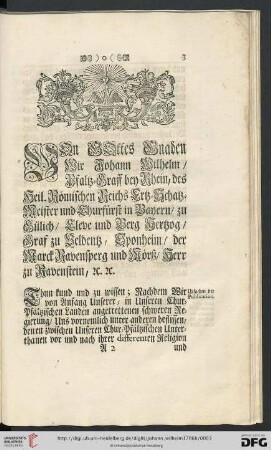 ) o (
3
VOn GOttes Gnaden
Wir Johann Wilhelm /
Pfaltz-Graff bey Rhein, des
Heil. Römischen Reichs Ertz-Schatz-
Meister und Churfürst in Bayern / zu
Gülich / Cleve und Berg Hertzog /
Graf zu Veldentz, Sponheim / der
Marck Ravensperg und Mörß / Herr
zu Ravenstein, ꝛc. ꝛc.
Thun kund und zu wissen; Nachdem Wir
von Anfang Unserer, in Unseren Chur-
Pfältzischen Landen angetrettenen schweren Re-
gierung / Uns vornemlich unter anderen
denen zwischen Unseren Chur-Pfältzischen Unter-
thanen vor und nach ihrer differenten Religion
A 2 und
http://digi.ub.uni-heidelberg.de/diglit/johann_wilhelm1706b/0003
© Universitätsbibliothek Heidelberg
gefördert durch die
DFG